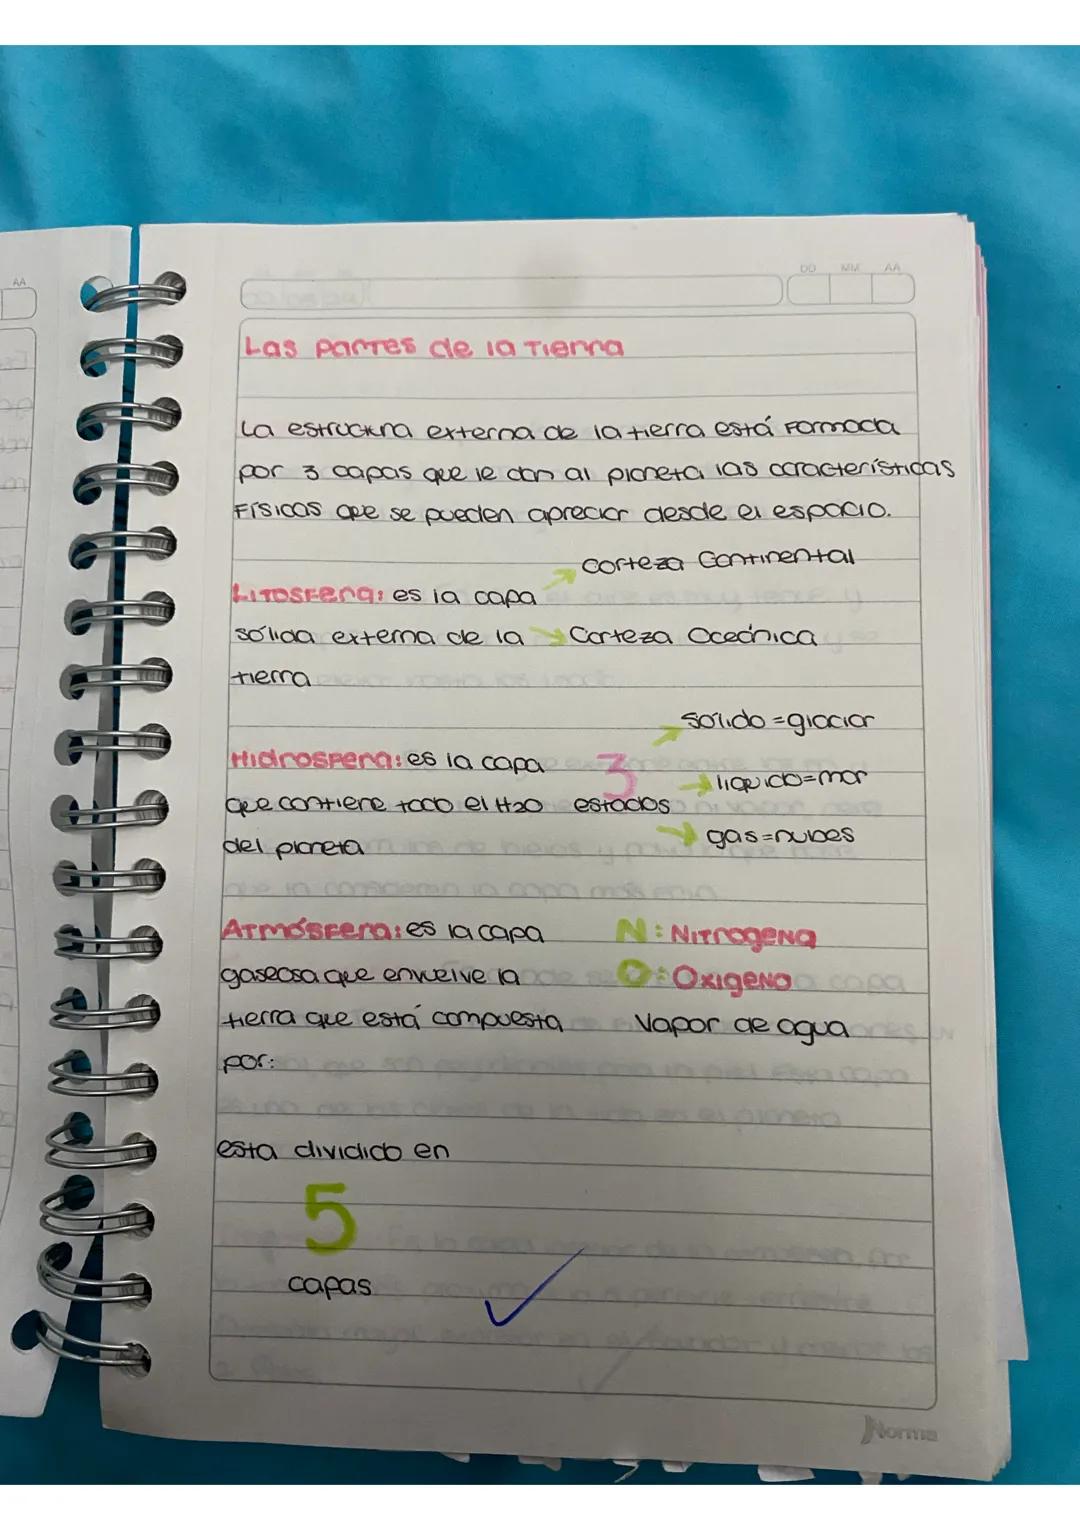 AA
DD MM AA
Las partes de la Tierra
La estructura externa de la tierra está Formada
por 3 capas que le dan al planeta las características
Físicas que se pueden apreciar desde el espacio.
Corteza Continental
LITOSFera: es la capa
sólida externa de la
Corteza Oceánica
tierra
sólido = glaciar
Hidrosfera: es la capa
3
liquido=mar
que contiene todo el H2O
estados
del planeta
gas=nubes
ATMósfera: es la capa
N: Nitrogena
gaseosa que envuelve la
O: Oxigeno
tierra que está compuesta
Vapor de agua
por:
esta dividido en
5
capas
Norma